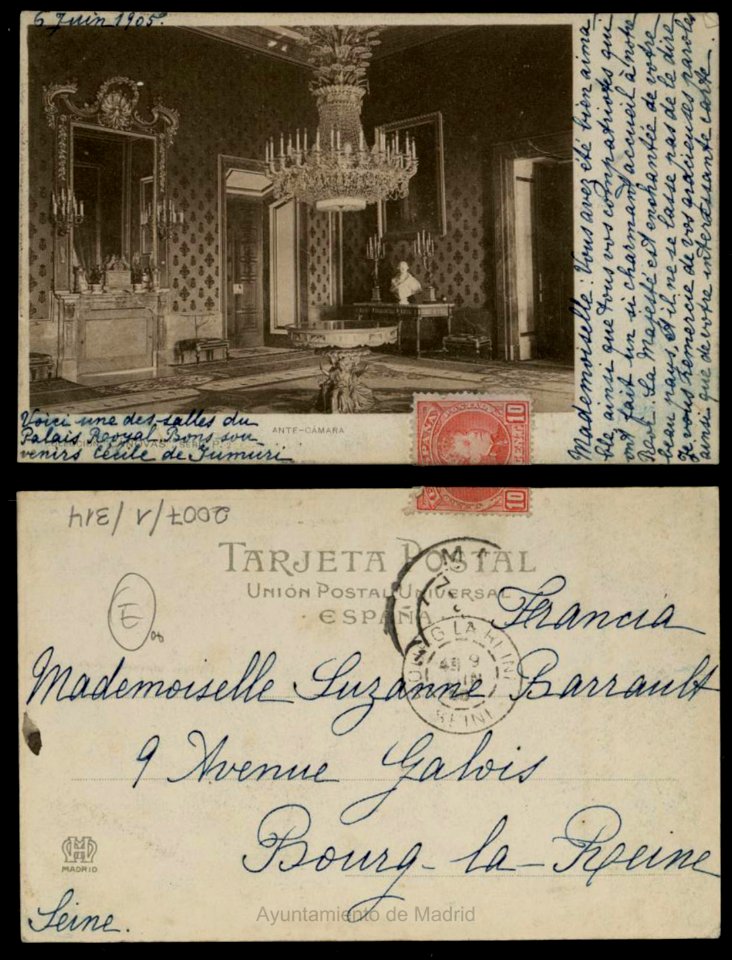 6 Juin 1905.
Mademoiselle: Vous avez été bien aima
ble ainsi que tous vos compatriotes qui
ont fait un si charmant accueil à notre
Roi. Sa Majesté est enchantée de votre
beau pays, et il ne se lasse pas de le dire
Je vous remercie de vos gracieuses paroles
ainsi que de votre intéressante carte.
Voici une des salles du
Palais Royal Bons sou-
venirs Cécile de Jumuri
ANTE-CÁMARA
CÁNOVAS
ESPAÑA
10 CENT. 10
10
2007/1/314
TARJETA POSTAL
UNIÓN POSTAL UNIVERSAL
ESPAÑA
E
BOURG LA REINE
9
JUIN
SEINE
Francia
Mademoiselle Suzanne Barrault
9 Avenue Galois
Bourg-la-Reine
Seine.
MADRID
Ayuntamiento de Madrid